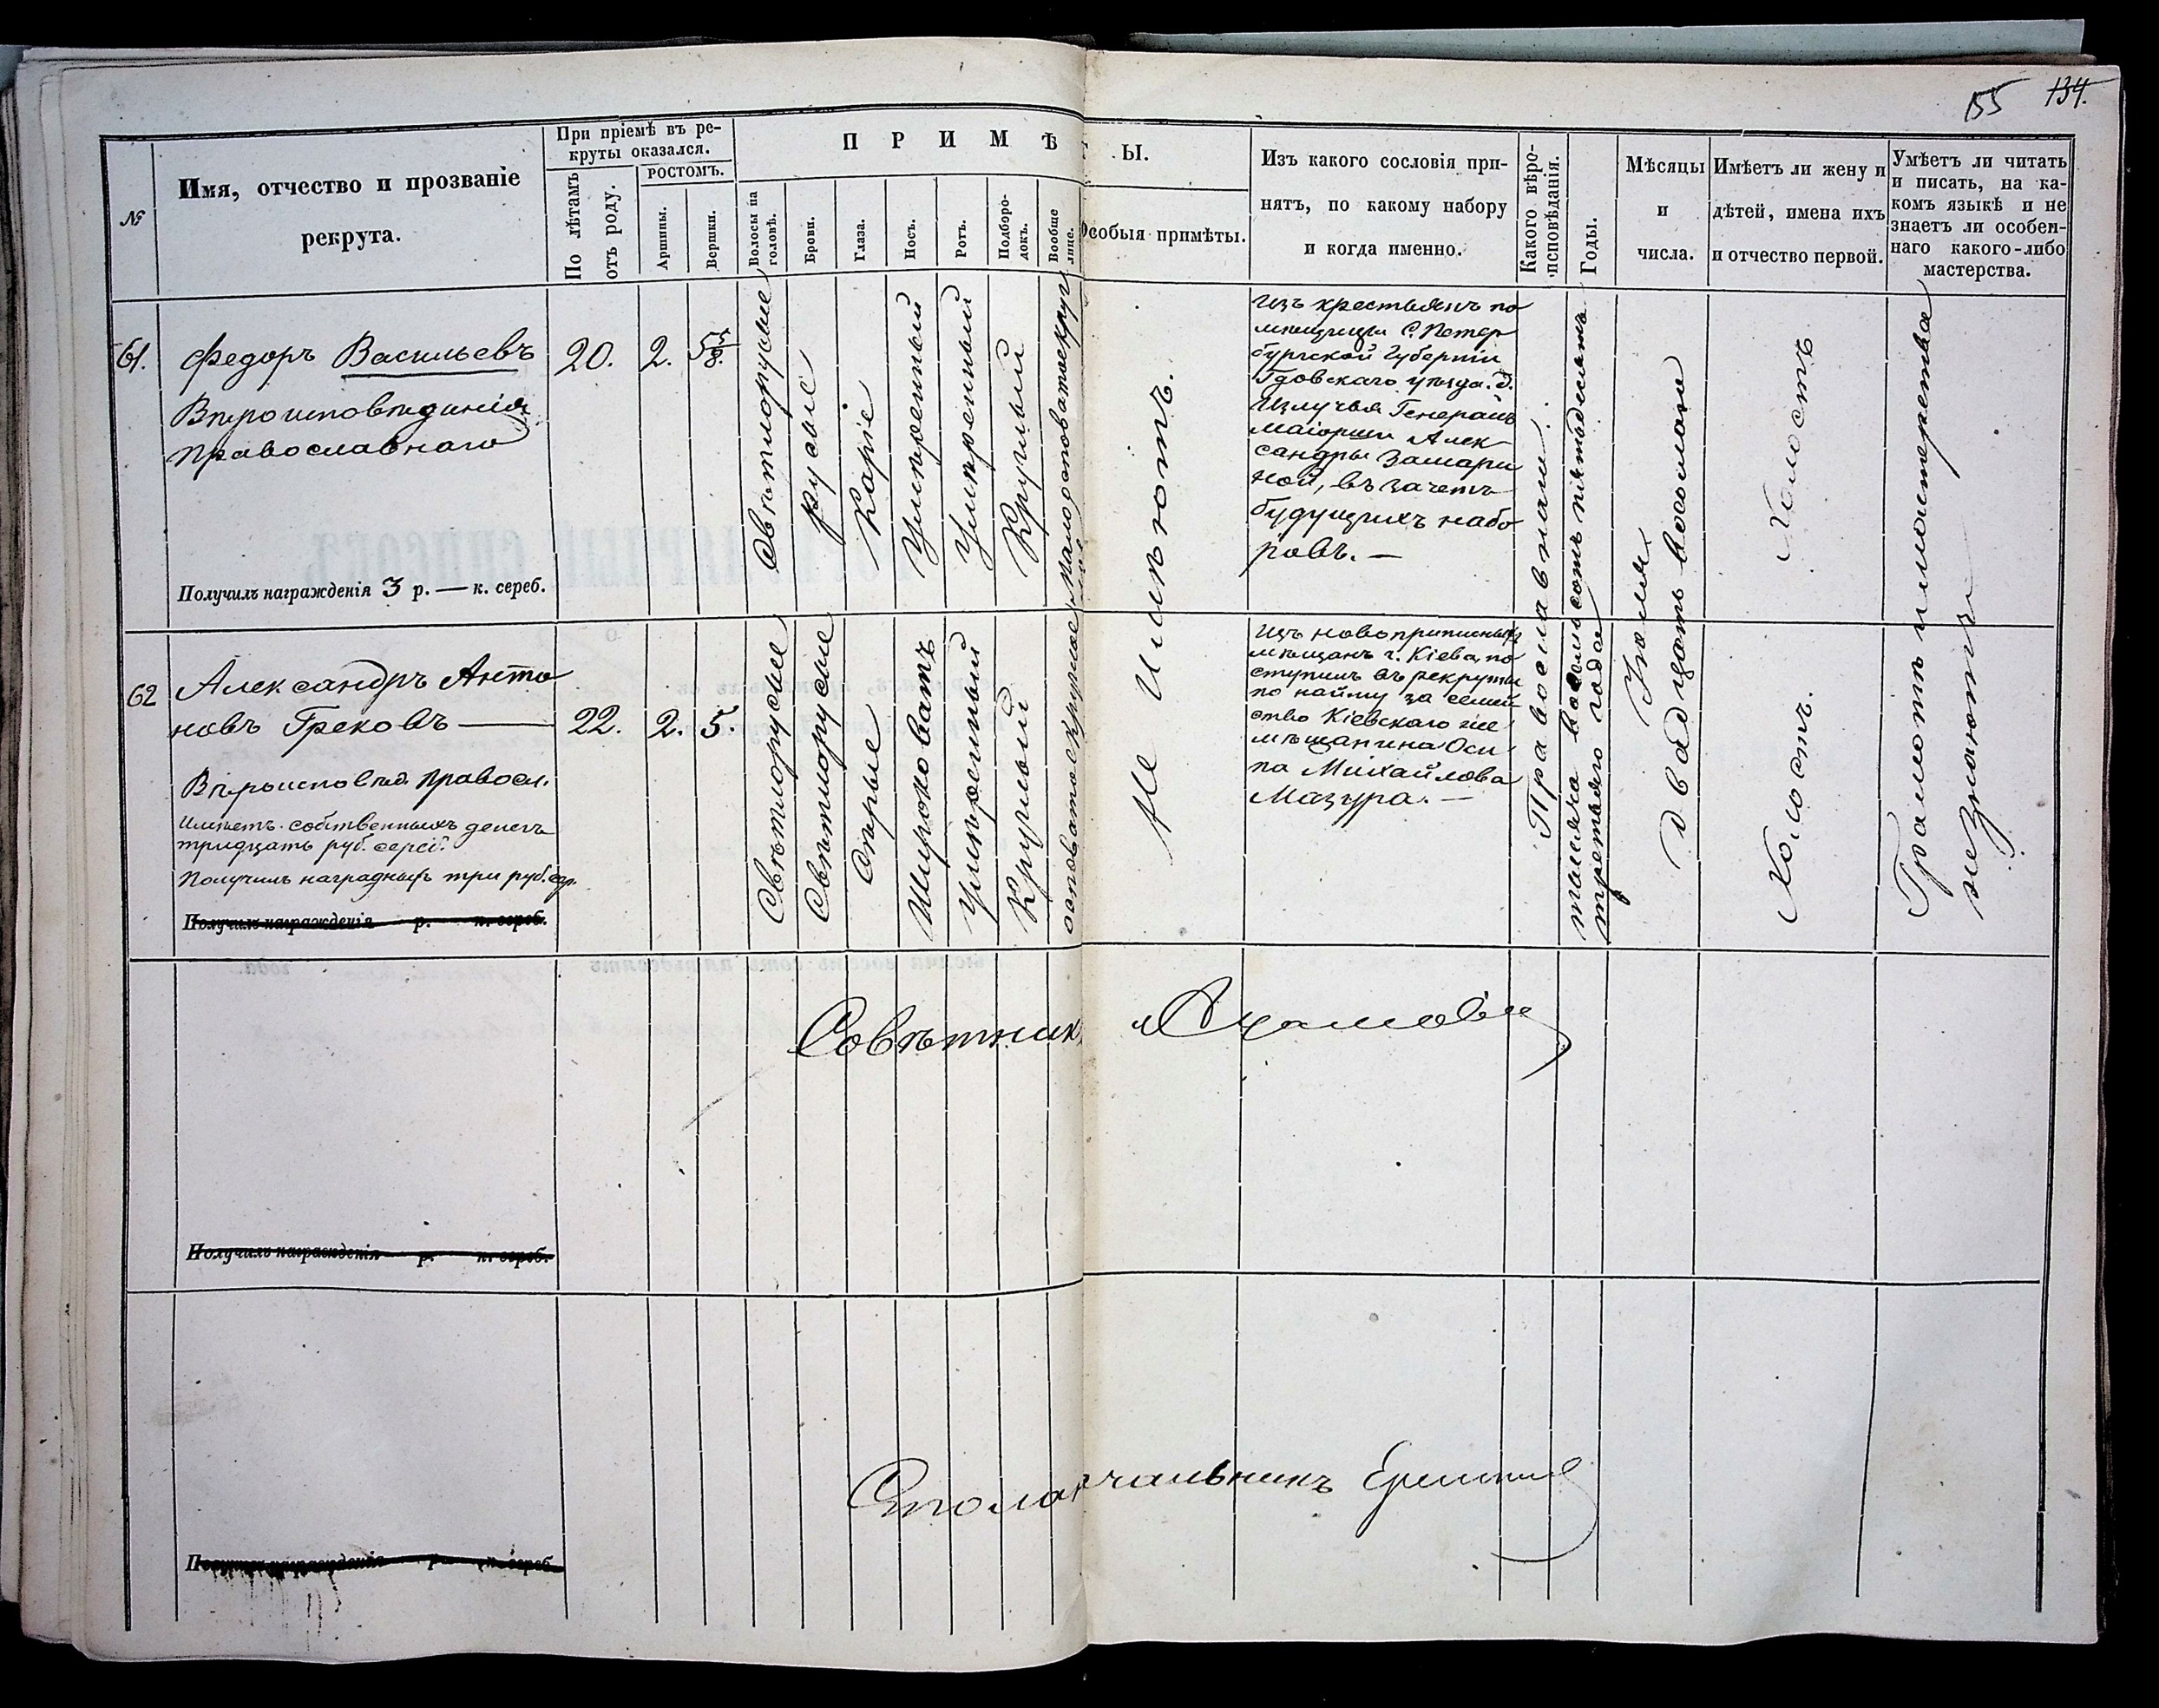 155 134.
№
Имя, отчество и прозваніе
рекрута.
При пріемѣ въ ре-
круты оказался.
По лѣтамъ
отъ роду.
РОСТОМЪ.
Аршины.
Вершки.
ПРИМѢ
Ы.
Волосы на
головѣ.
Брови.
Глаза.
Носъ.
Ротъ.
Подборо-
докъ.
Вообще
лице.
Особыя примѣты.
Изъ какого сословія при-
нятъ, по какому набору
и когда именно.
Какого вѣро-
исповѣданія.
Годы.
Мѣсяцы
и
числа.
Имѣетъ ли жену и
дѣтей, имена ихъ
и отчество первой.
Умѣетъ ли читать
и писать, на ка-
комъ языкѣ и не
знаетъ ли особен-
наго какого-либо
мастерства.
61.
Федоръ Васильевъ
Вѣроисповѣданія
Православнаго
Получилъ награжденія 3 р. — к. сереб.
20.
2.
5 5/8.
Свѣтлорусые
русые
Каріе
Умѣренный
Умѣренный
Круглый
Изъ крестьянъ по
мѣщицы С. Петер
бургской Губерніи
Гдовскаго уѣзда. д.
Излучья Генералъ
Маіорши Алек
сандры
ной, въ зачетъ
будущихъ набо
ровъ. —
Холостъ
62
Александръ Анто
новъ Грековъ —
Вѣроисповѣд. Правосл.
Имѣетъ собственныхъ денегъ
тридцать руб. сереб.
Получилъ наградныхъ три руб. сер.
Получилъ награжденія р. к. сереб.
22.
2.
5.
Свѣтлорусые
Свѣтлорусые
Сѣрые
Широковатъ
Умѣренный
Круглый
осповатое круглое
Не имѣютъ.
Изъ новоприписныхъ
мѣщанъ г. Кіева, по
ступилъ въ рекруты
по найму за семей
ство Кіевскаго же
мѣщанина Оси
па Михайлова
Мазура. —
Православнаго.
тысяча восемьсотъ пятьдесятъ
третьяго года
Іюля
двадцать восьмаго
Холостъ.
Грамотѣ и мастерства
не знаютъ
Совѣтникъ
Получилъ награжденія р. к. сереб.
Столоначальникъ
Получилъ награжденія р. к. сереб.